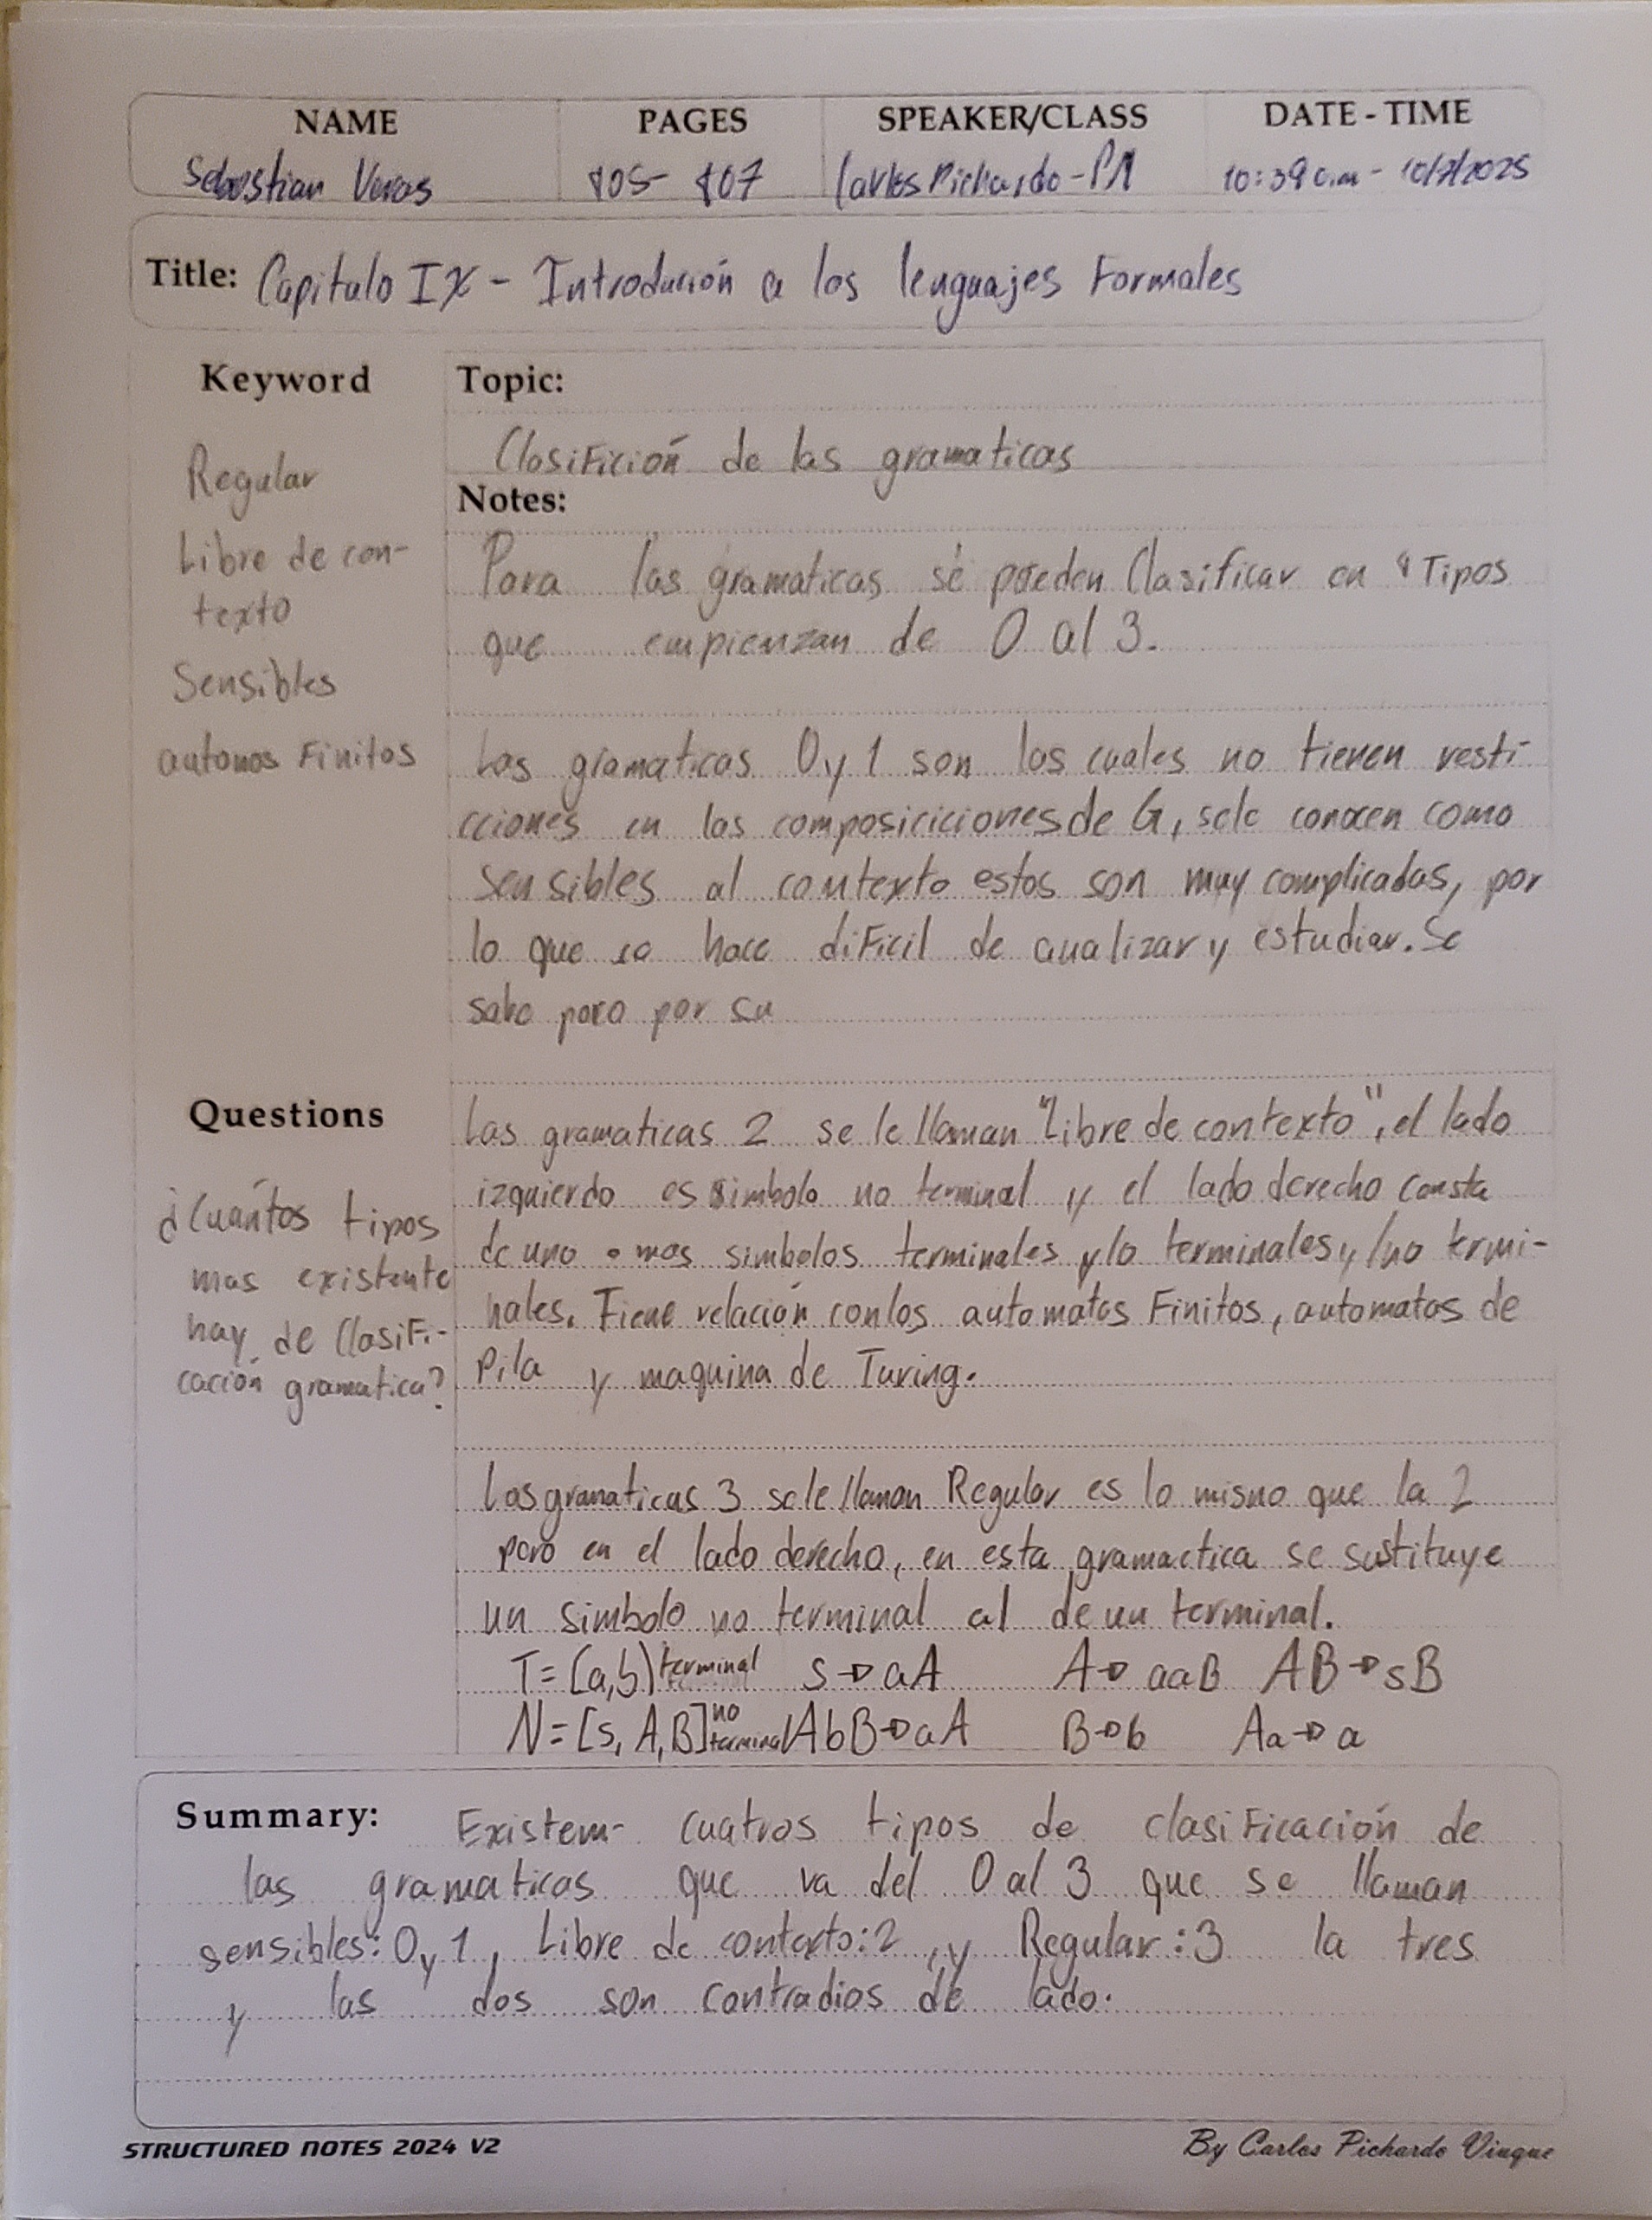 NAME PAGES SPEAKER/CLASS DATE - TIME
Sebastian Veras 405- 407 Carlos Pichardo - PM 10:39 a.m - 10/7/2025
Title: Capitulo IX - Introdución a los lenguajes Formales
Keyword
Regular
Libre de con-
texto
Sensibles
automos Finitos
Topic:
Clasifición de las gramaticas
Notes:
Para las gramaticas se pueden Clasificar en 4 Tipos
que empienzan de 0 al 3.
Las gramaticas 0 y 1 son los cuales no tienen resti-
cciones en las composiciciones de G, sele conocen como
sensibles al contexto estos son muy complicadas, por
lo que se hace dificil de analizar y estudiar. Se
sabe poco por su
Questions
¿Cuántos tipos
mas existente
hay de Clasifi-
cación gramatica?
Las gramaticas 2 se le llaman "Libre de contexto", el lado
izquierdo es simbolo no terminal y el lado derecho consta
de uno o mas simbolos terminales y/o terminales y/no termi-
nales. Tiene relación con los automatas Finitos, automatas de
Pila y maquina de Turing.
Las gramaticas 3 se le llaman Regular es lo mismo que la 2
pero en el lado derecho, en esta gramactica se sustituye
un simbolo no terminal al de un terminal.
T=[a,b) terminal s→aA A→ aaB AB→sB
N=[s, A,B] no terminal AbB→aA B→b Aa→a
Summary: Existem- cuatros tipos de clasificación de
las gramaticas que va del 0 al 3 que se llaman
sensibles: 0 y 1, Libre de contexto: 2, y Regular: 3 la tres
y las dos son contradios de lado.
STRUCTURED NOTES 2024 V2 By Carlos Pichardo Viuque